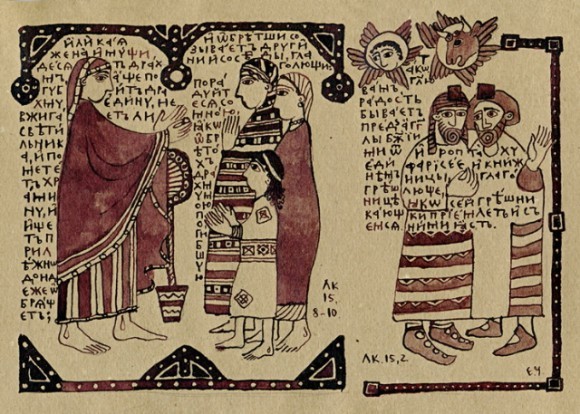 И҆ЛИ КАѦ
ЖЕНА И҆МУЩИ,
ДЕСѦТЬ ДРАХ
МЪ, А҆ЩЕ ПО
ГУБИТЪ ДРА
ХМУ ЕДИНУ, НЕ
ВЖИГАЕТЪ ЛИ
СВѢТИЛЬ
НИКА, И ПО
МЕТЕ
ТЪ ХРА
МИНУ, И
И҆ЩЕ
ТЪ П
РИЛ
ѢЖНѠ
ДОНД
ЕЖЕ Ѡ
БРѦЩ
ЕТЪ;
И҆ Ѡ҆БРѢТШИ СО
ЗЫВАЕТЪ ДРУГИ
НИ И СОСѢДЫ, ГЛА
ГОЛЮЩИ:
ПОРА
ДУЙТ
ЕСѦ СО
МНОЮ
ꙖКѠ
Ѡ҆БРѢТО
ХЪ Д
РАХ
МУ Ю
ПО
ГИ
БШ
УЮ
ЛК
15,
8-10.
ТАКѠ
ГЛЮ
ВАМЪ,
РАДОСТЬ
БЫВАЕТЪ
ПРЕД АГГ
ЛЫ БЖІИ
МИ Ѡ Е
ДИНѢ
МЪ
ГРѢШ
НИЦѢ
КАЮЩ
ЕМСѦ
И҆ РОПТАХУ
ФАРІСЕЕ И КНИЖ
НИЦЫ, ГЛАГО
ЛЮЩЕ,
ꙖКѠ СЕЙ ГРѢШНИ
КИ ПРІЕМЛЕТЪ И СЪ
НИМИ ꙖСТЬ
ЛК. 15, 2.
Е.Ч